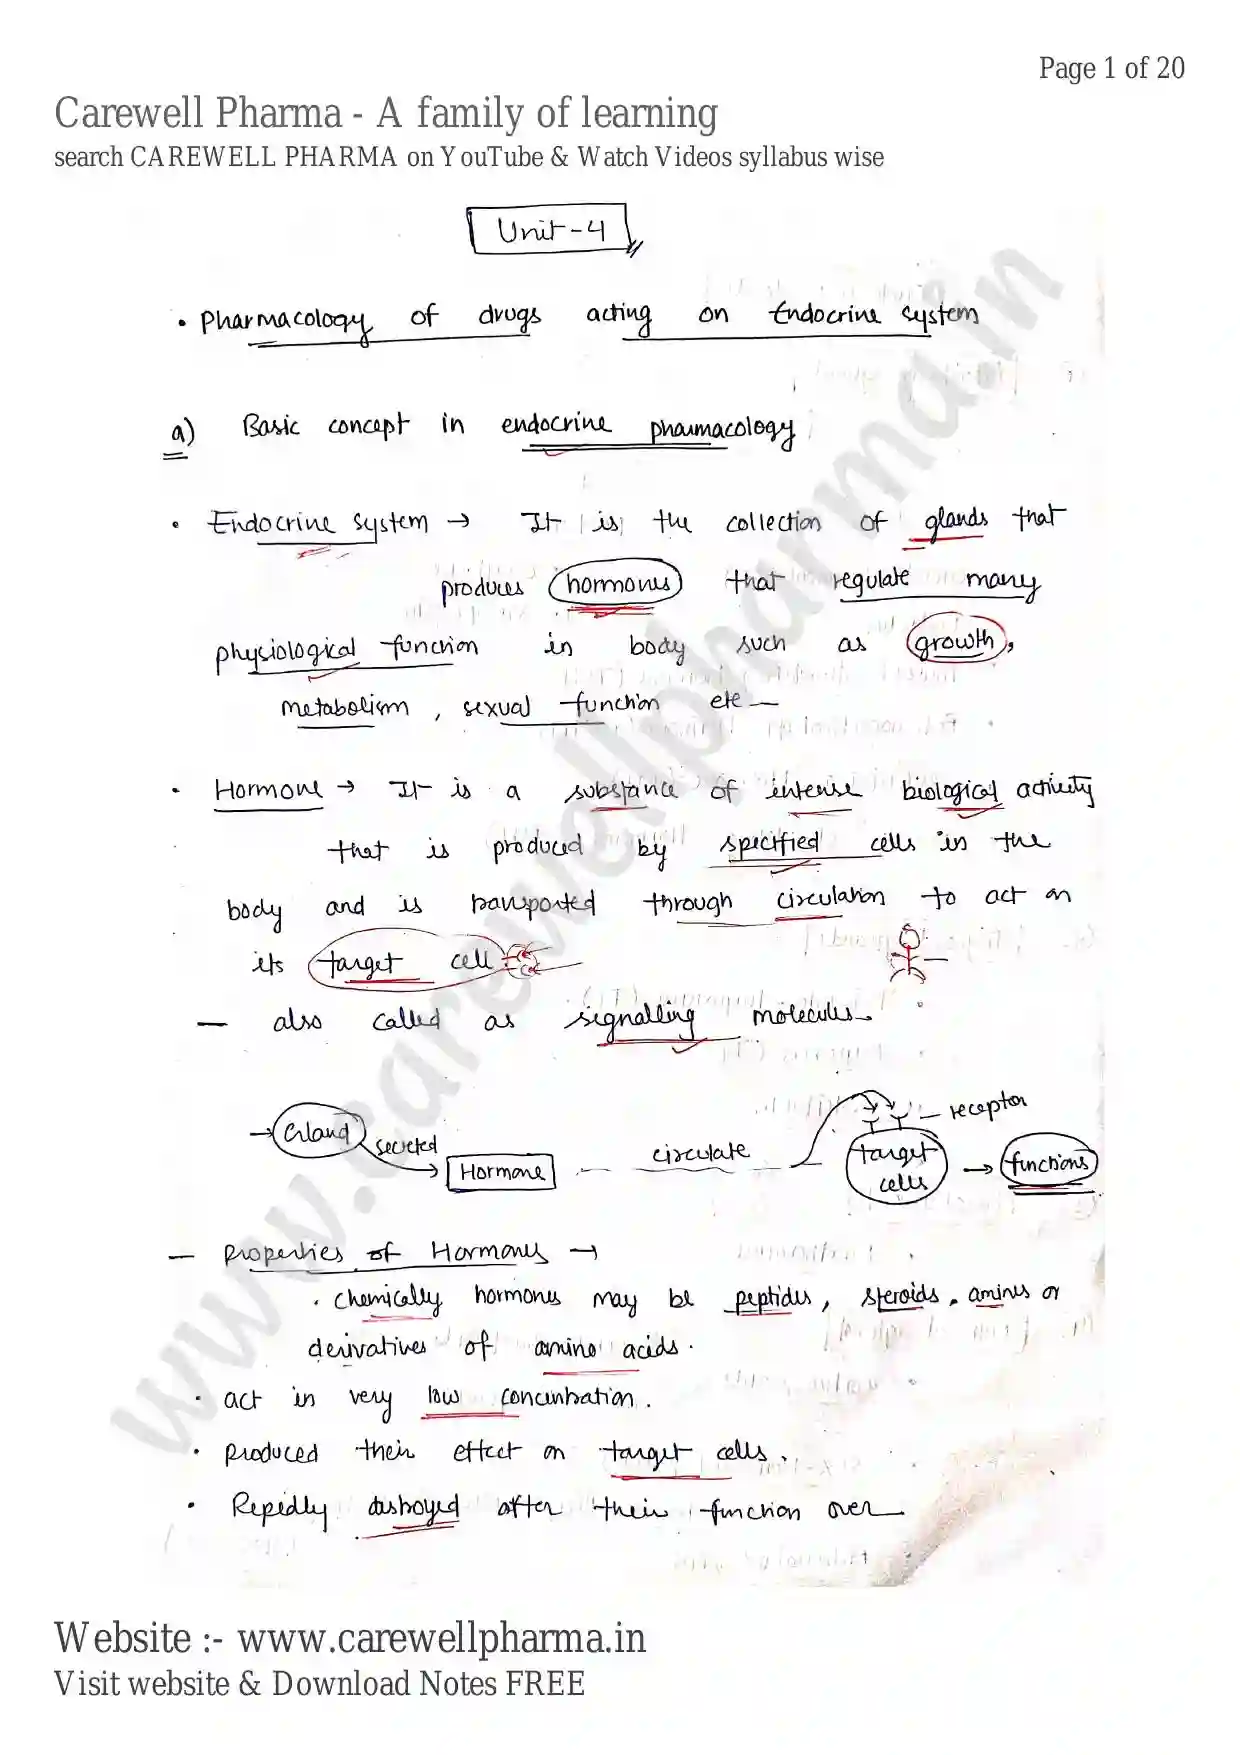 Page 1 of 20
Carewell Pharma - A family of learning
search CAREWELL PHARMA on YouTube & Watch Videos syllabus wise
Unit-4
• Pharmacology of drugs acting on Endocrine system
a) Basic concept in endocrine pharmacology
• Endocrine system → It is the collection of glands that
produces hormones that regulate many
physiological function in body such as growth,
metabolism, sexual function etc —
• Hormone → It is a substance of intense biological activity
that is produced by specified cells in the
body and is transported through circulation to act on
its target cell
— also called as signalling molecules.
→ Gland secreted → Hormone — circulate — target cells → functions
receptor
— Properties of Hormones →
• chemically hormones may be peptides, steroids, amines or
derivatives of amino acids.
• act in very low concentration.
• produced their effect on target cells.
• Repedly destroyed after their function over
www.carewellpharma.in
Website :- www.carewellpharma.in
Visit website & Download Notes FREE